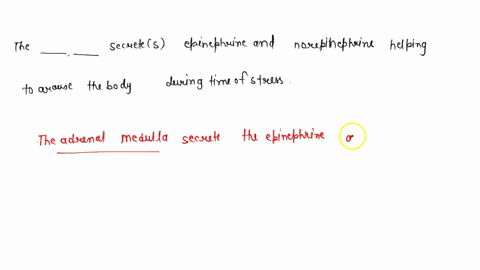 The ___, ___ secrete(s) epinephrine and norepihephrine helping
to arouse the body during time of stress.
The adrenal medulla secrete the epinephrine a